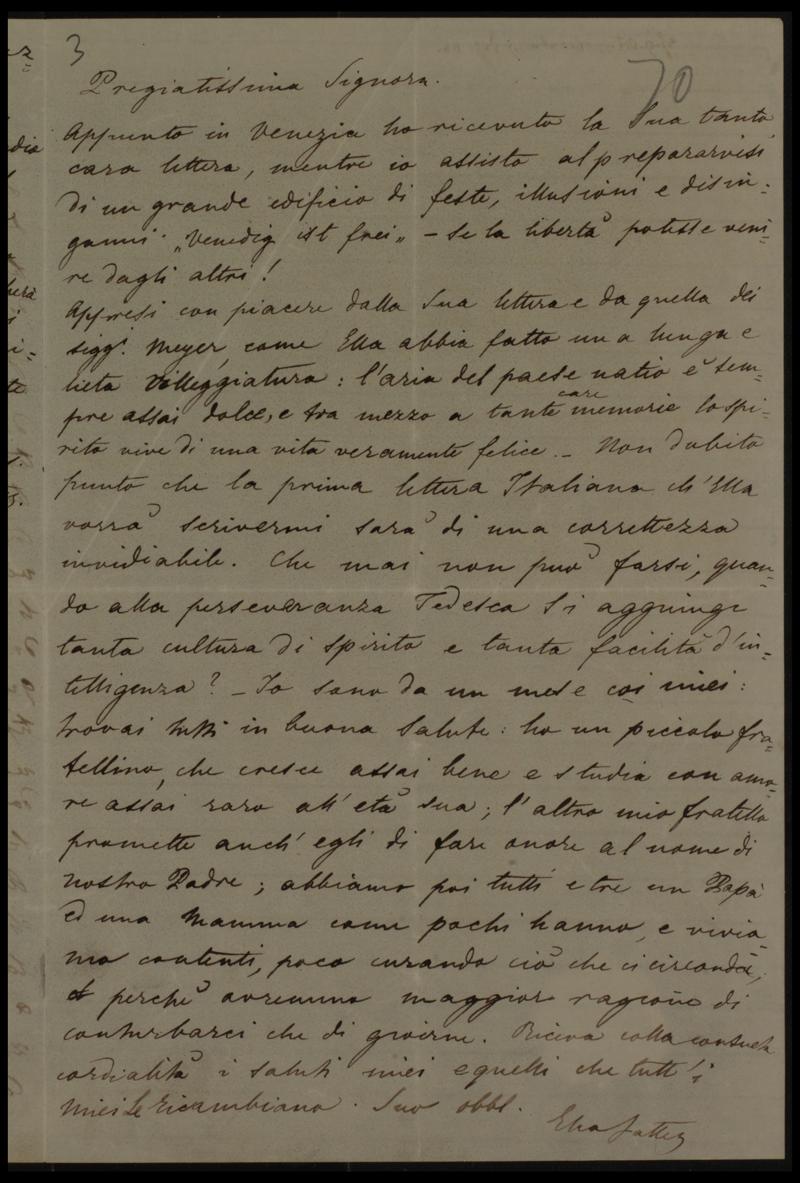 3
70
Pregiatissima Signora.
Appunto in Venezia ho ricevuto la Sua tanto
cara lettera, mentre io assisto al prepararvisi
di un grande edificio di feste, illusioni e disin=
ganni. „Venedig ist frei„ – se la libertà potesse veni=
re dagli altri!
Appresi con piacere dalla Sua lettera e da quella dei
sigg.i Meyer, come Ella abbia fatto una lunga e
lieta villeggiatura: l'aria del paese natio è sem=
pre assai dolce, e tra mezzo a tante care memorie lo spi=
rito vive di una vita veramente felice. – Non dubito
punto che la prima lettera Italiana ch'Ella
vorrà scrivermi sarà di una correttezza
invidiabile. Che mai non può farsi, quan=
do alla perseveranza Tedesca si aggiunge
tanta cultura di spirito e tanta facilità d'in=
telligenza? – Io sono da un mese coi miei:
trovai tutti in buona salute: ho un piccolo fra=
tellino, che cresce assai bene e studia con amo=
re assai raro all'età sua; l'altro mio fratello
promette anch'egli di fare onore al nome di
nostro Padre; abbiamo poi tutti e tre un Papà
ed una Mamma come pochi hanno, e vivia=
mo contenti, poco curando ciò che ci circonda,
perché avremmo maggior ragione di
conturbarci che di gioirne. Riceva colla consueta
cordialità i saluti miei e quelli che tutt'i
miei Le ricambiano. Suo obbl.